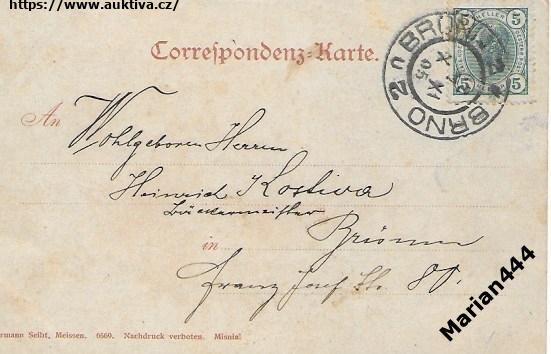 https://www.auktiva.cz/
Correspondenz-Karte.
BRÜNN
BRNO 2
5 HELLER 5
5 5
An
Wohlgeboren Herrn
Heinrich Kostiva
Bäckermeister
in Brünn
Franz Josef Str. 80.
rmann Seibt, Meissen. 6669. Nachdruck verboten. Misnia
Marian444